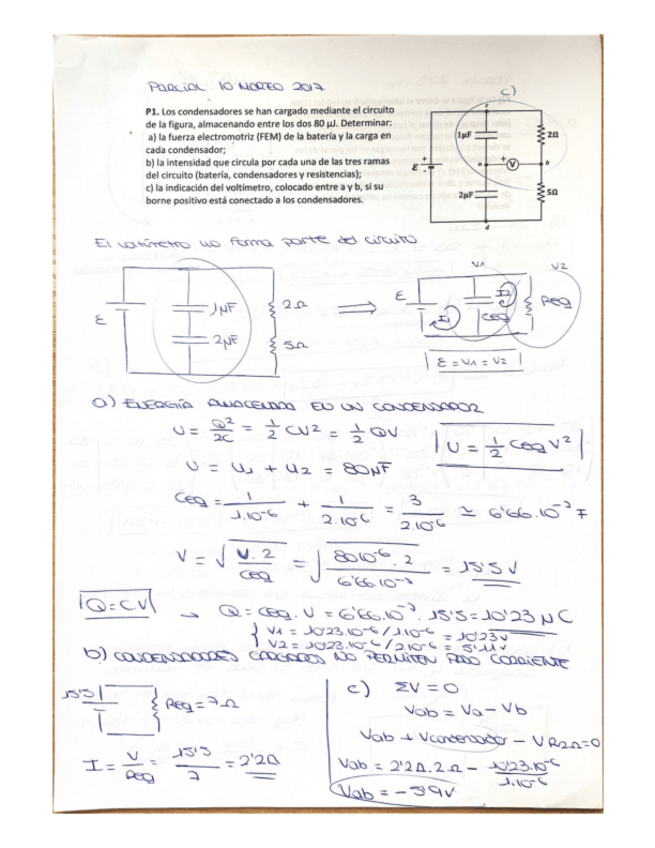 PARCIAL 10 MARZO 2017
P1. Los condensadores se han cargado mediante el circuito
de la figura, almacenando entre los dos 80 μJ. Determinar:
a) la fuerza electromotriz (FEM) de la batería y la carga en
cada condensador;
b) la intensidad que circula por cada una de las tres ramas
del circuito (batería, condensadores y resistencias);
c) la indicación del voltímetro, colocado entre a y b, si su
borne positivo está conectado a los condensadores.
c)
c
1μF
2Ω
ε
+
a
+
V
b
2μF
5Ω
d
El voltímetro no forma parte del circuito
ε
1μF
2μF
2Ω
5Ω
V1
V2
ε
I1
I2
Ceq
Req
ε = V1 = V2
a) ENERGÍA ALMACENADA EN UN CONDENSADOR
U = Q²/2C = 1/2 CV² = 1/2 QV
U = 1/2 Ceq V²
U = U1 + U2 = 80μF
Ceq = 1/1.10⁻⁶ + 1/2.10⁻⁶ = 3/2.10⁻⁶ ≃ 6'66.10⁻⁷ F
V = √(U.2/Ceq) = √(80.10⁻⁶.2/6'66.10⁻⁷) = 15'5 V
Q = C.V → Q = Ceq.V = 6'66.10⁻⁷.15'5 = 10'23 μC
V1 = 10'23.10⁻⁶/1.10⁻⁶ = 10'23V
V2 = 10'23.10⁻⁶/2.10⁻⁶ = 5'11V
b) CONDENSADORES CARGADOS NO PERMITEN PASO CORRIENTE
15'5
Req = 7Ω
I = V/Req = 15'5/7 = 2'2A
c) ΣV = 0
Vab = Va - Vb
Vab + Vcondensador - VR2Ω = 0
Vab = 2'2A.2Ω - 10'23.10⁻⁶/1.10⁻⁶
Vab = -5'9V